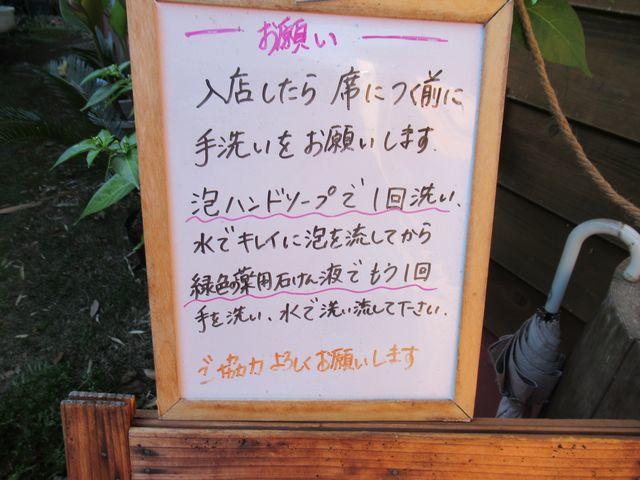 お願い
入店したら 席につく前に
手洗いをお願いします.
泡ハンドソープで1回洗い、
水でキレイに泡を流してから
緑色の薬用石けん液でもう1回
手を洗い、水で洗い流して下さい.
ご協力よろしくお願いします